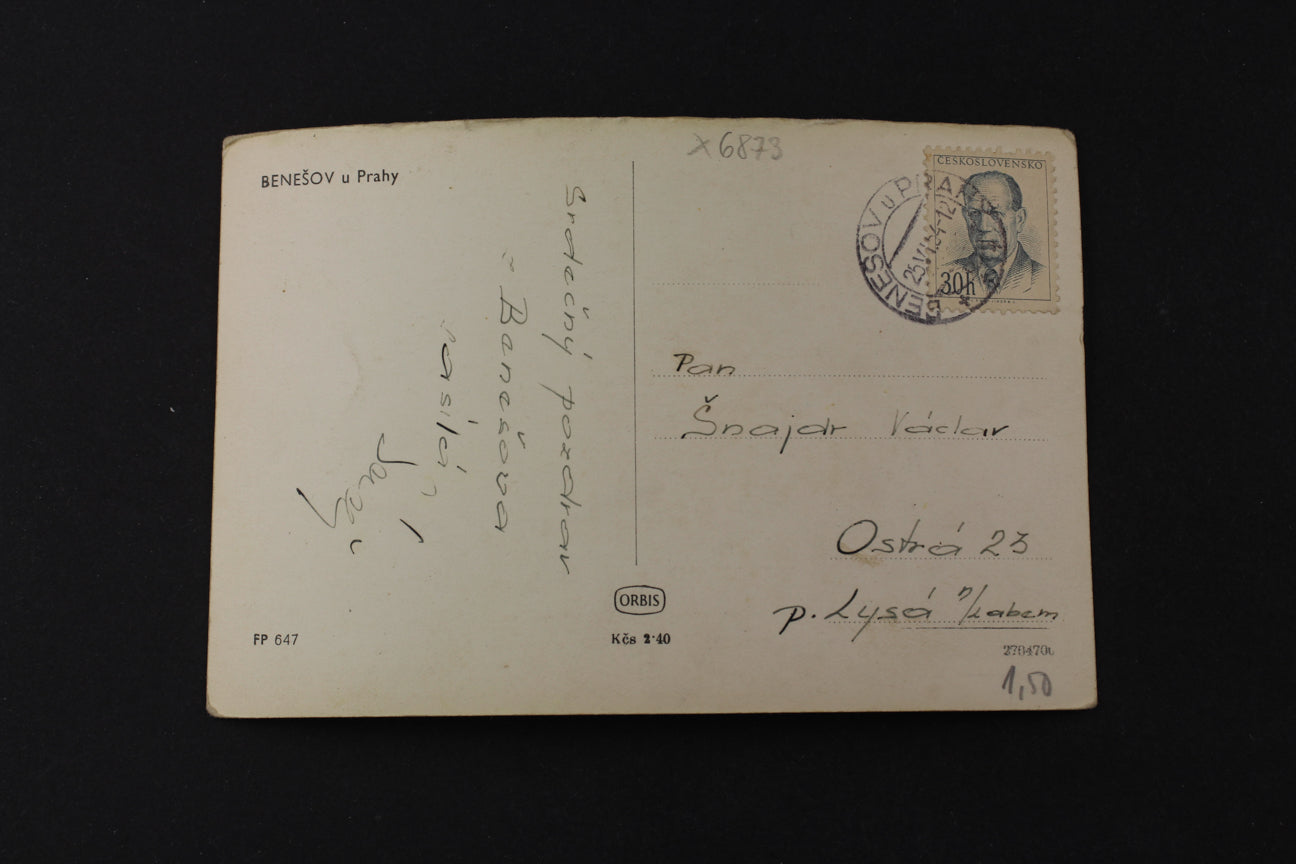 BENEŠOV u Prahy
x6873
ČESKOSLOVENSKO
30h
BENEŠOV u PRAHY
25.VI.54-12
Srdečný pozdrav
z Benešova
zasílá
Pan
Šnajdr Václav
Ostrá 23
p. Lysá n/Labem
ORBIS
FP 647
Kčs 2·40
1,50